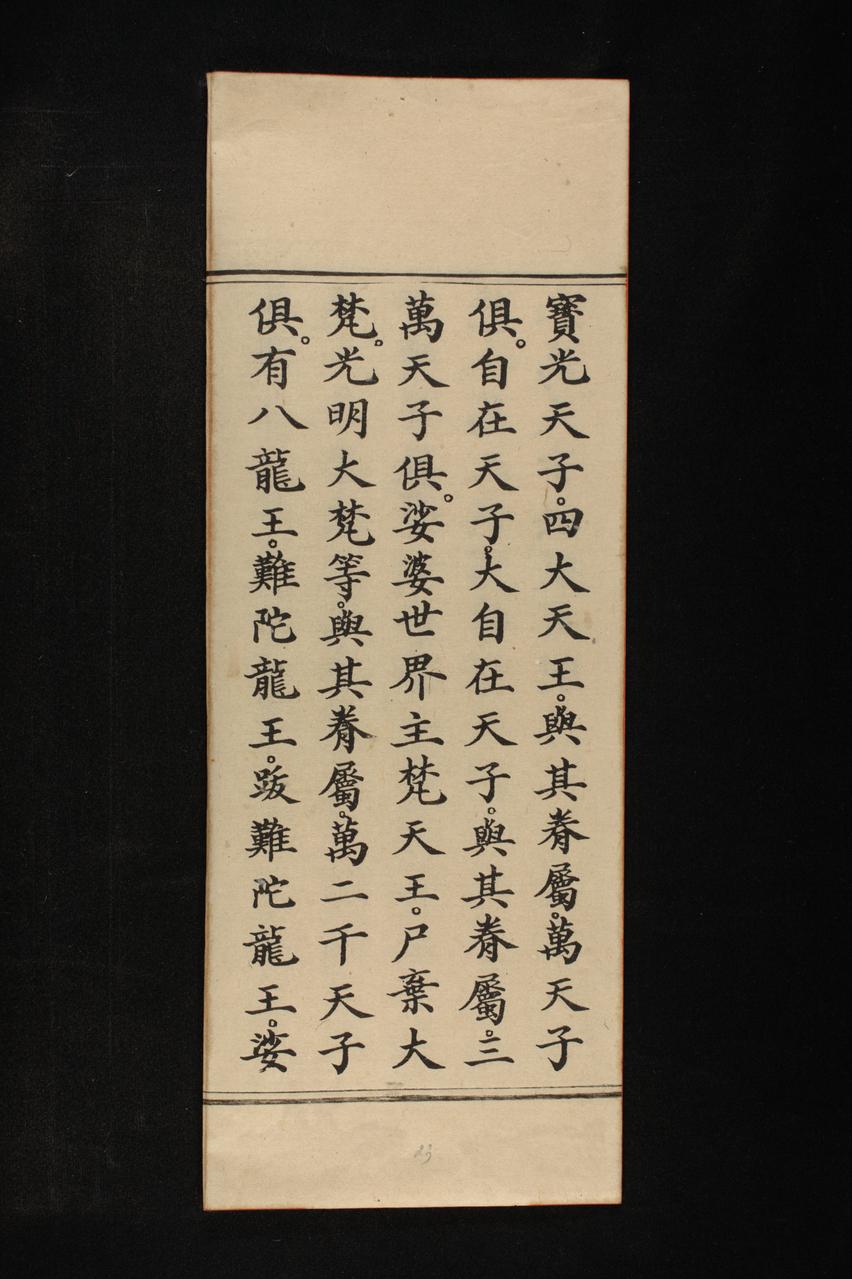 寶光天子。四大天王。與其眷屬。萬天子
俱。自在天子。大自在天子。與其眷屬。三
萬天子俱。娑婆世界主梵天王。尸棄大
梵。光明大梵等。與其眷屬。萬二千天子
俱。有八龍王。難陀龍王。跋難陀龍王。娑
23